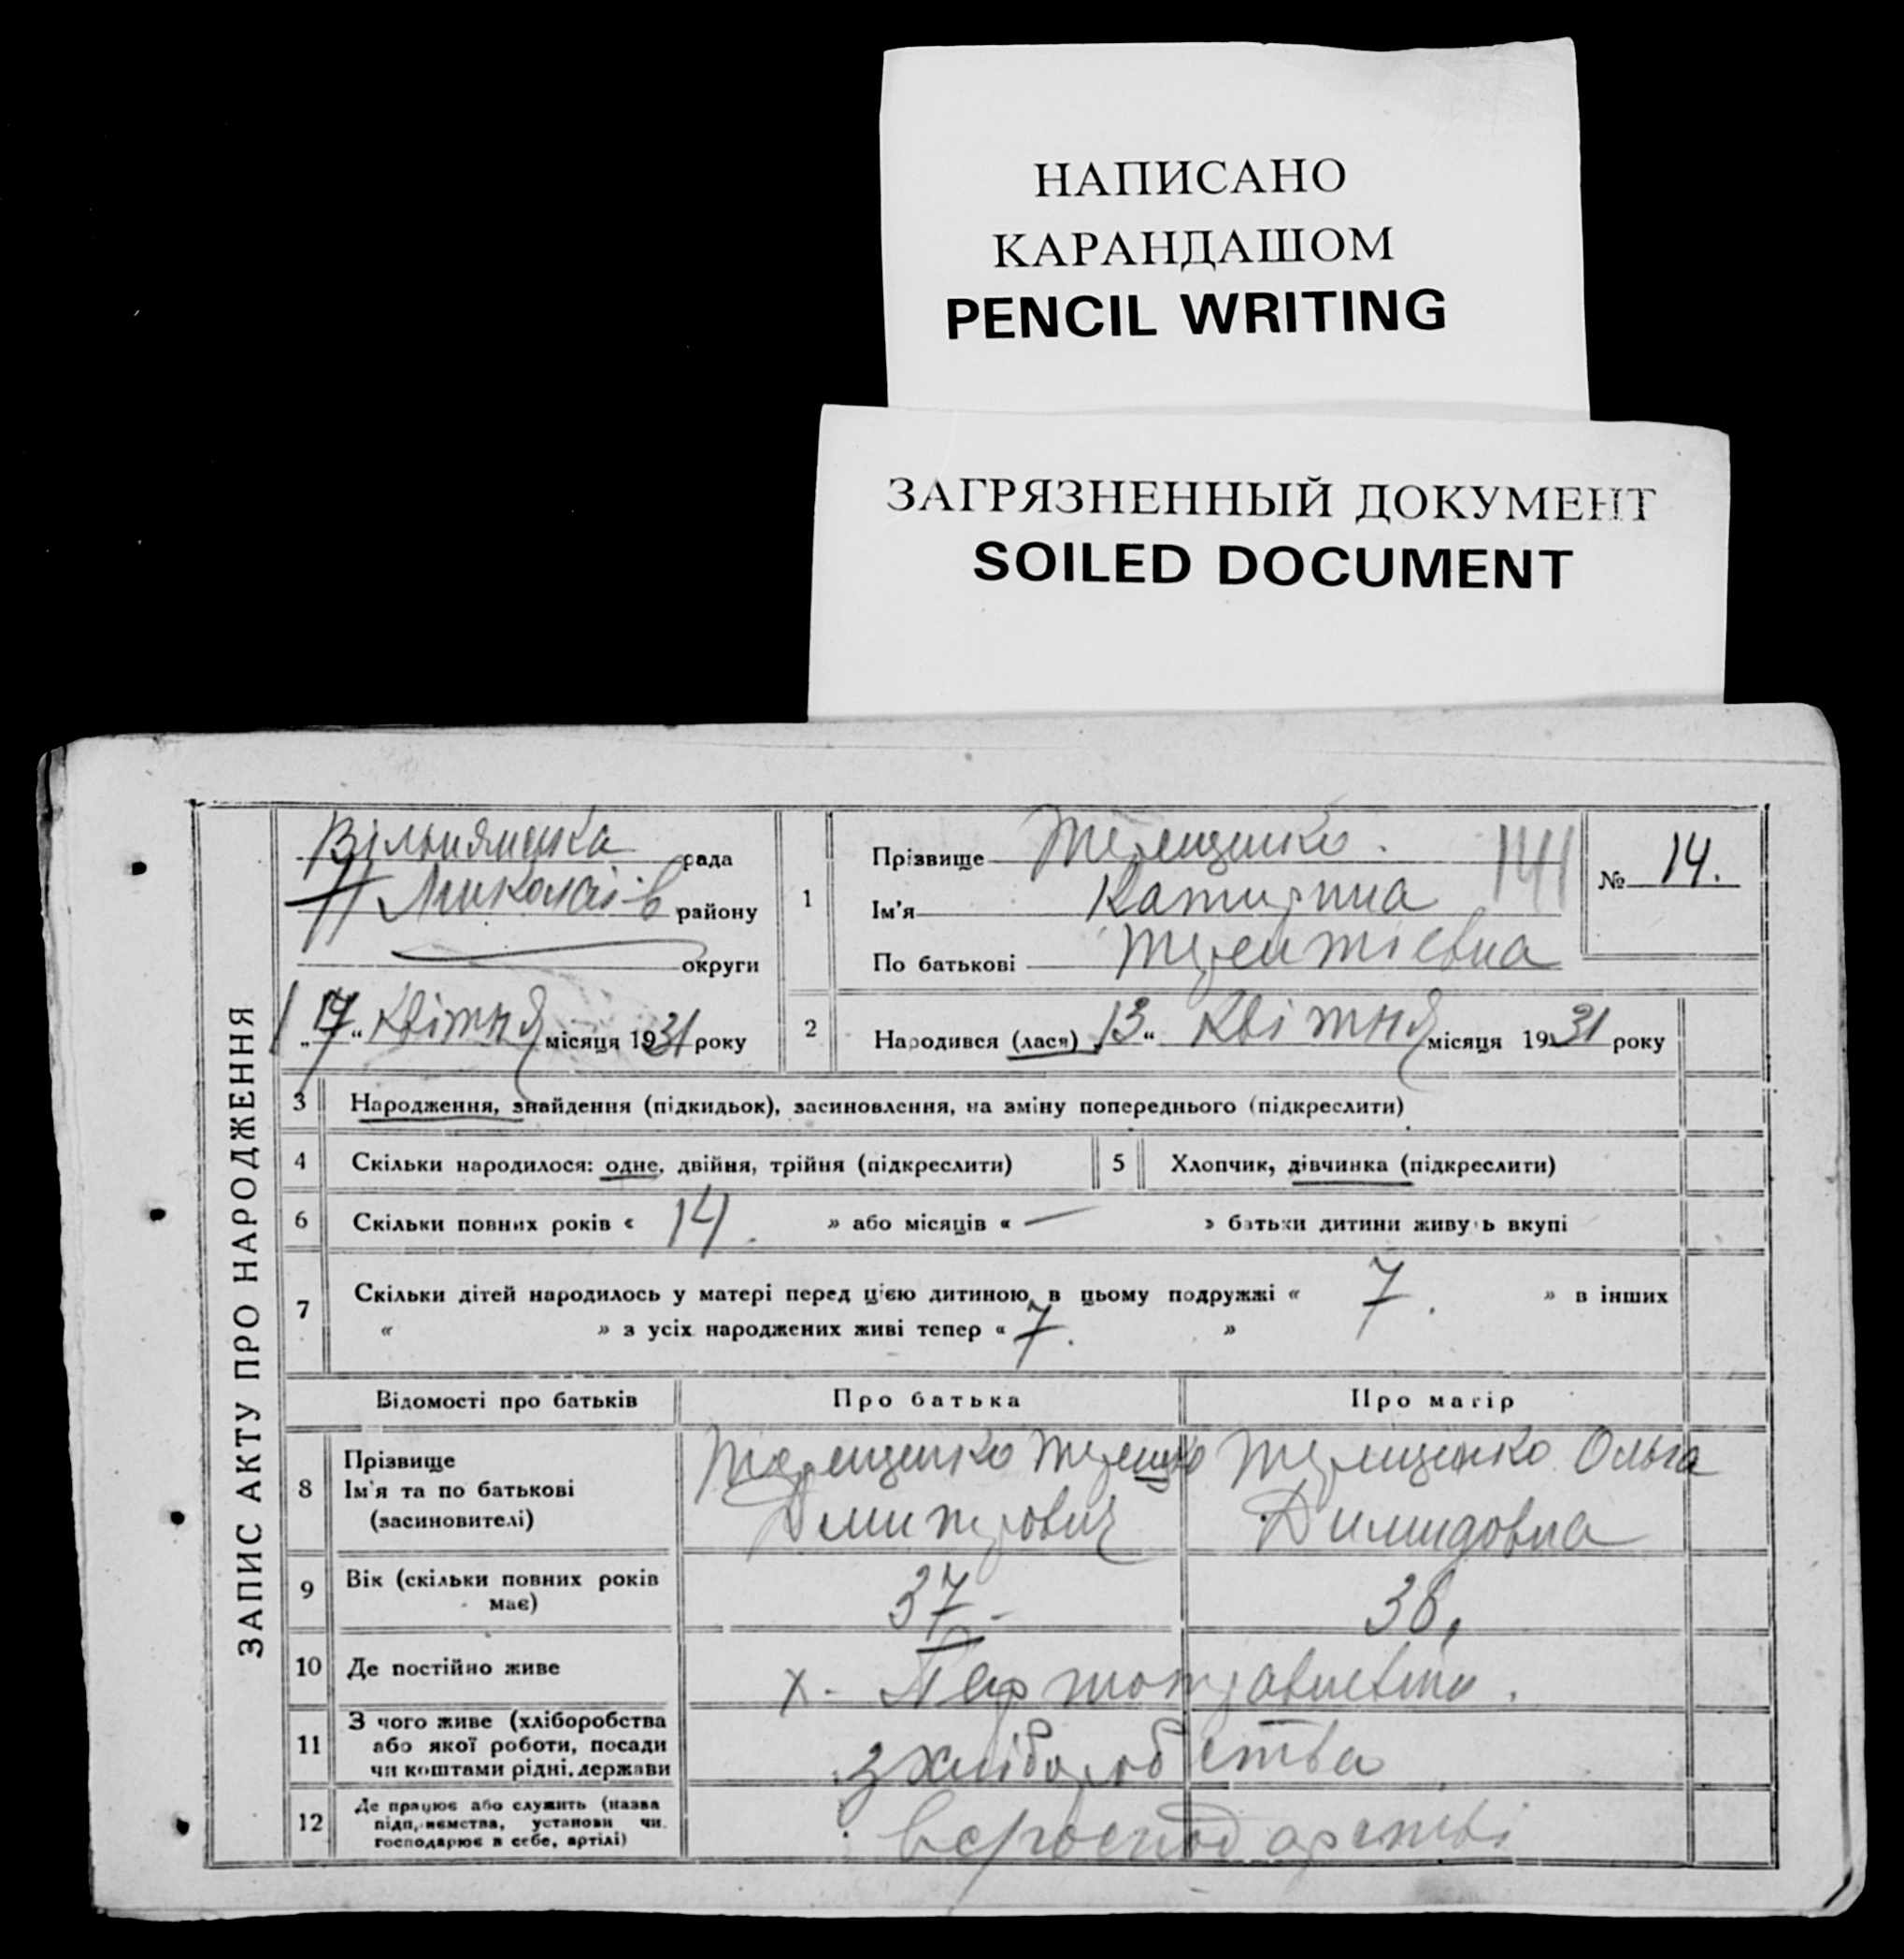 НАПИСАНО
КАРАНДАШОМ
PENCIL WRITING
ЗАГРЯЗНЕННЫЙ ДОКУМЕНТ
SOILED DOCUMENT
ЗАПИС АКТУ ПРО НАРОДЖЕННЯ
рада
Миколаїв району
округи
„17“ Квітня місяця 1931 року
1
Прізвище Терещенко. 141
Ім'я Катирина
По батькові Терентіевна
№ 14.
2 Народився (лася) „13“ Квітня місяця 1931 року
3 Народження, знайдення (підкидьок), засиновлення, на зміну попереднього (підкреслити)
4 Скільки народилося: одне, двійня, трійня (підкреслити) 5 Хлопчик, дівчинка (підкреслити)
6 Скільки повних років « 14. » або місяців « — » батьки дитини живуть вкупі
7 Скільки дітей народилось у матері перед цією дитиною в цьому подружжі « 7. » в інших
« » з усіх народжених живі тепер « 7. »
Відомості про батьків Про батька Про матір
8 Прізвище
Ім'я та по батькові
(засиновителі)
Терещенко
Дмитрович
Терещенко Ольга
Димидовна
9 Вік (скільки повних років
має)
37 38.
10 Де постійно живе х.
11 З чого живе (хліборобства
або якої роботи, посади
чи коштами рідні, держави
з хліборобства
12 Де працює або служить (назва
підприємства, установи чи
господарює в себе, артілі)